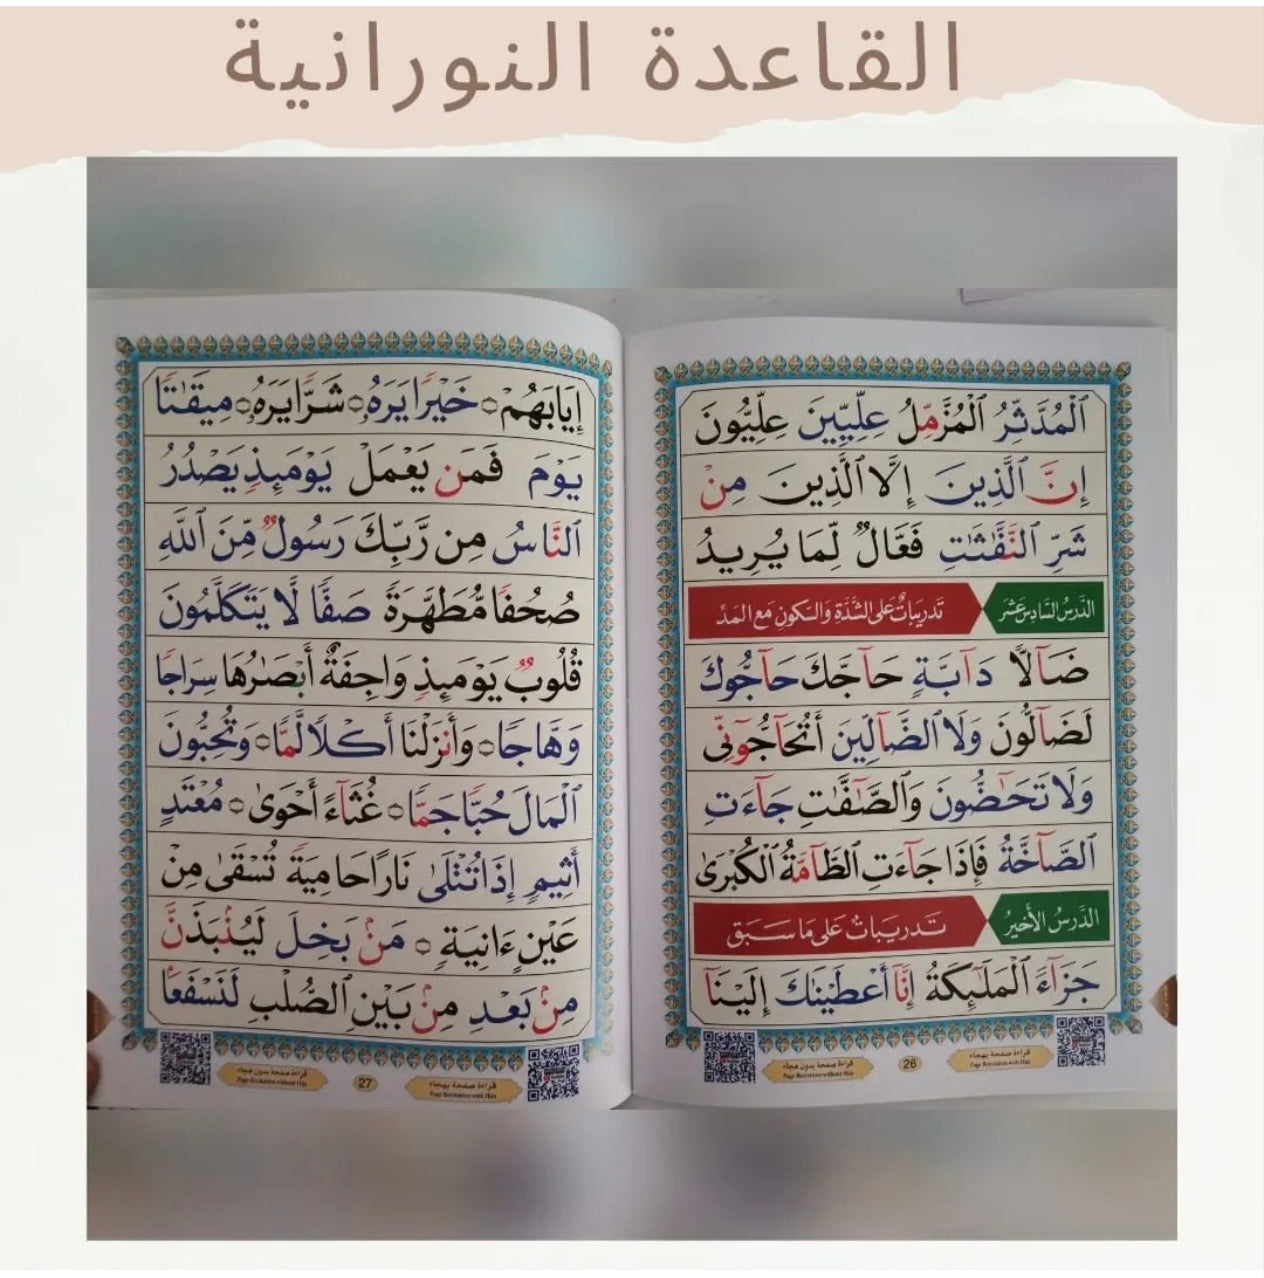 القاعدة النورانية
ٱلْمُدَّثِّرُ ٱلْمُزَّمِّلُ عِلِّيِّينَ عِلِّيُّونَ
إِنَّ ٱلَّذِينَ إِلَّا ٱلَّذِينَ مِنْ
شَرِّ ٱلنَّفَّٰثَٰتِ فَعَّالٌ لِّمَا يُرِيدُ
الدَّرسُ السَّادِسَ عَشَر تَدريبَاتٌ عَلى الشَّدَّةِ وَالسّكونِ مَع المَدِّ
ضَآلًّا دَآبَّةٍ حَآجَّكَ حَآجُّوكَ
لَضَآلُّونَ وَلَا ٱلضَّآلِّينَ أَتُحَآجُّوٓنِّى
وَلَا تَحَٰٓضُّونَ وَٱلصَّٰٓفَّٰتِ جَآءَتِ
ٱلصَّآخَّةُ فَإِذَا جَآءَتِ ٱلطَّآمَّةُ ٱلْكُبْرَىٰ
الدَّرسُ الأَخيرُ تَدريبَاتٌ عَلى مَا سَبَق
جَزَآءً ٱلْمَلَٰٓئِكَةُ إِنَّآ أَعْطَيْنَٰكَ إِلَيْنَآ
قراءة صفحة بهجاء
Page Recitation with Hija
26
قراءة صفحة بدون هجاء
Page Recitation without Hija
إِيَابَهُمْ خَيْرًا يَرَهُۥ شَرًّا يَرَهُۥ مِيقَٰتًا
يَوْمَ فَمَن يَعْمَلْ يَوْمَئِذٍ يَصْدُرُ
ٱلنَّاسُ مِن رَّبِّكَ رَسُولٌ مِّنَ ٱللَّهِ
صُحُفًا مُّطَهَّرَةً صَفًّا لَّا يَتَكَلَّمُونَ
قُلُوبٌ يَوْمَئِذٍ وَاجِفَةٌ أَبْصَٰرُهَا سِرَاجًا
وَهَّاجًا وَأَنزَلْنَا أَكْلًا لَّمًّا وَتُحِبُّونَ
ٱلْمَالَ حُبًّا جَمًّا غُثَآءً أَحْوَىٰ مُعْتَدٍ
أَثِيمٍ إِذَا تُتْلَىٰ نَارًا حَامِيَةً تُسْقَىٰ مِنْ
عَيْنٍ ءَانِيَةٍ مَنۢ بَخِلَ لَيُنۢبَذَنَّ
مِنۢ بَعْدِ مِنۢ بَيْنِ ٱلصُّلْبِ لَنَسْفَعًۢا
قراءة صفحة بهجاء
Page Recitation with Hija
27
قراءة صفحة بدون هجاء
Page Recitation without Hija